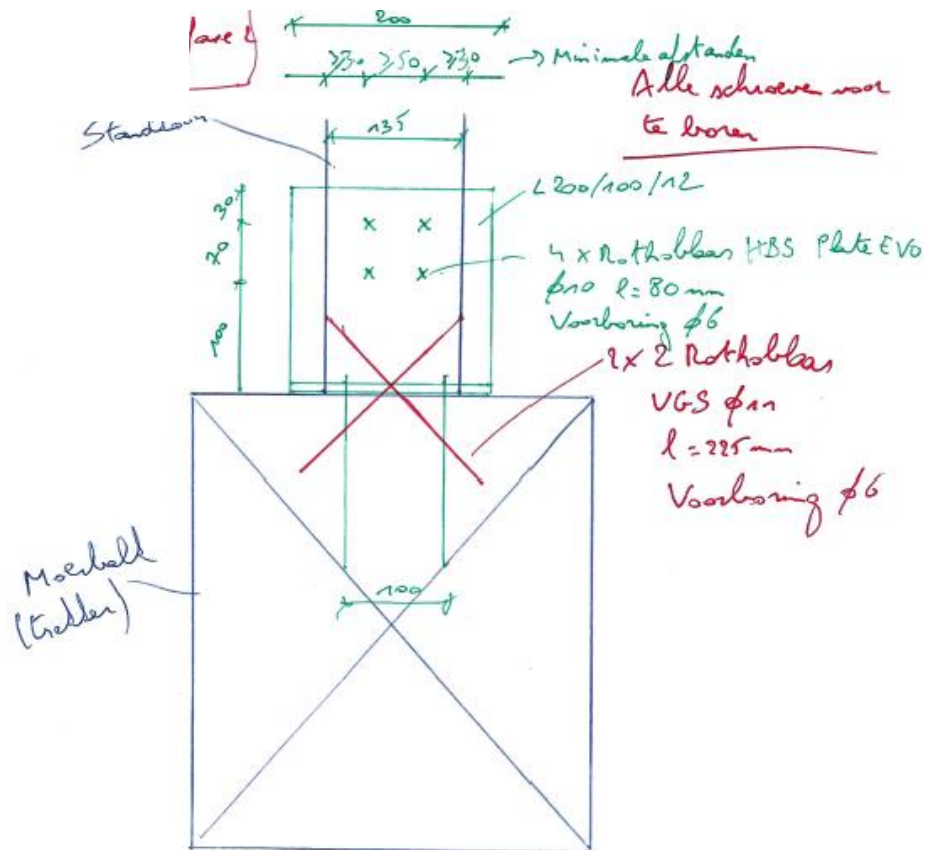 200
fase 2
≥30 ≥50 ≥30
→ Minimale afstanden
Alle schroeven voor
te boren
135
L 200/100/12
30
70
100
4 x Rothoblaas HBS Plate EVO
ø10 l=80mm
Voorboring ø6
2x2 Rothoblaas
VGS ø11
l=225mm
Voorboring ø6
100
Moerbalk
(trekker)